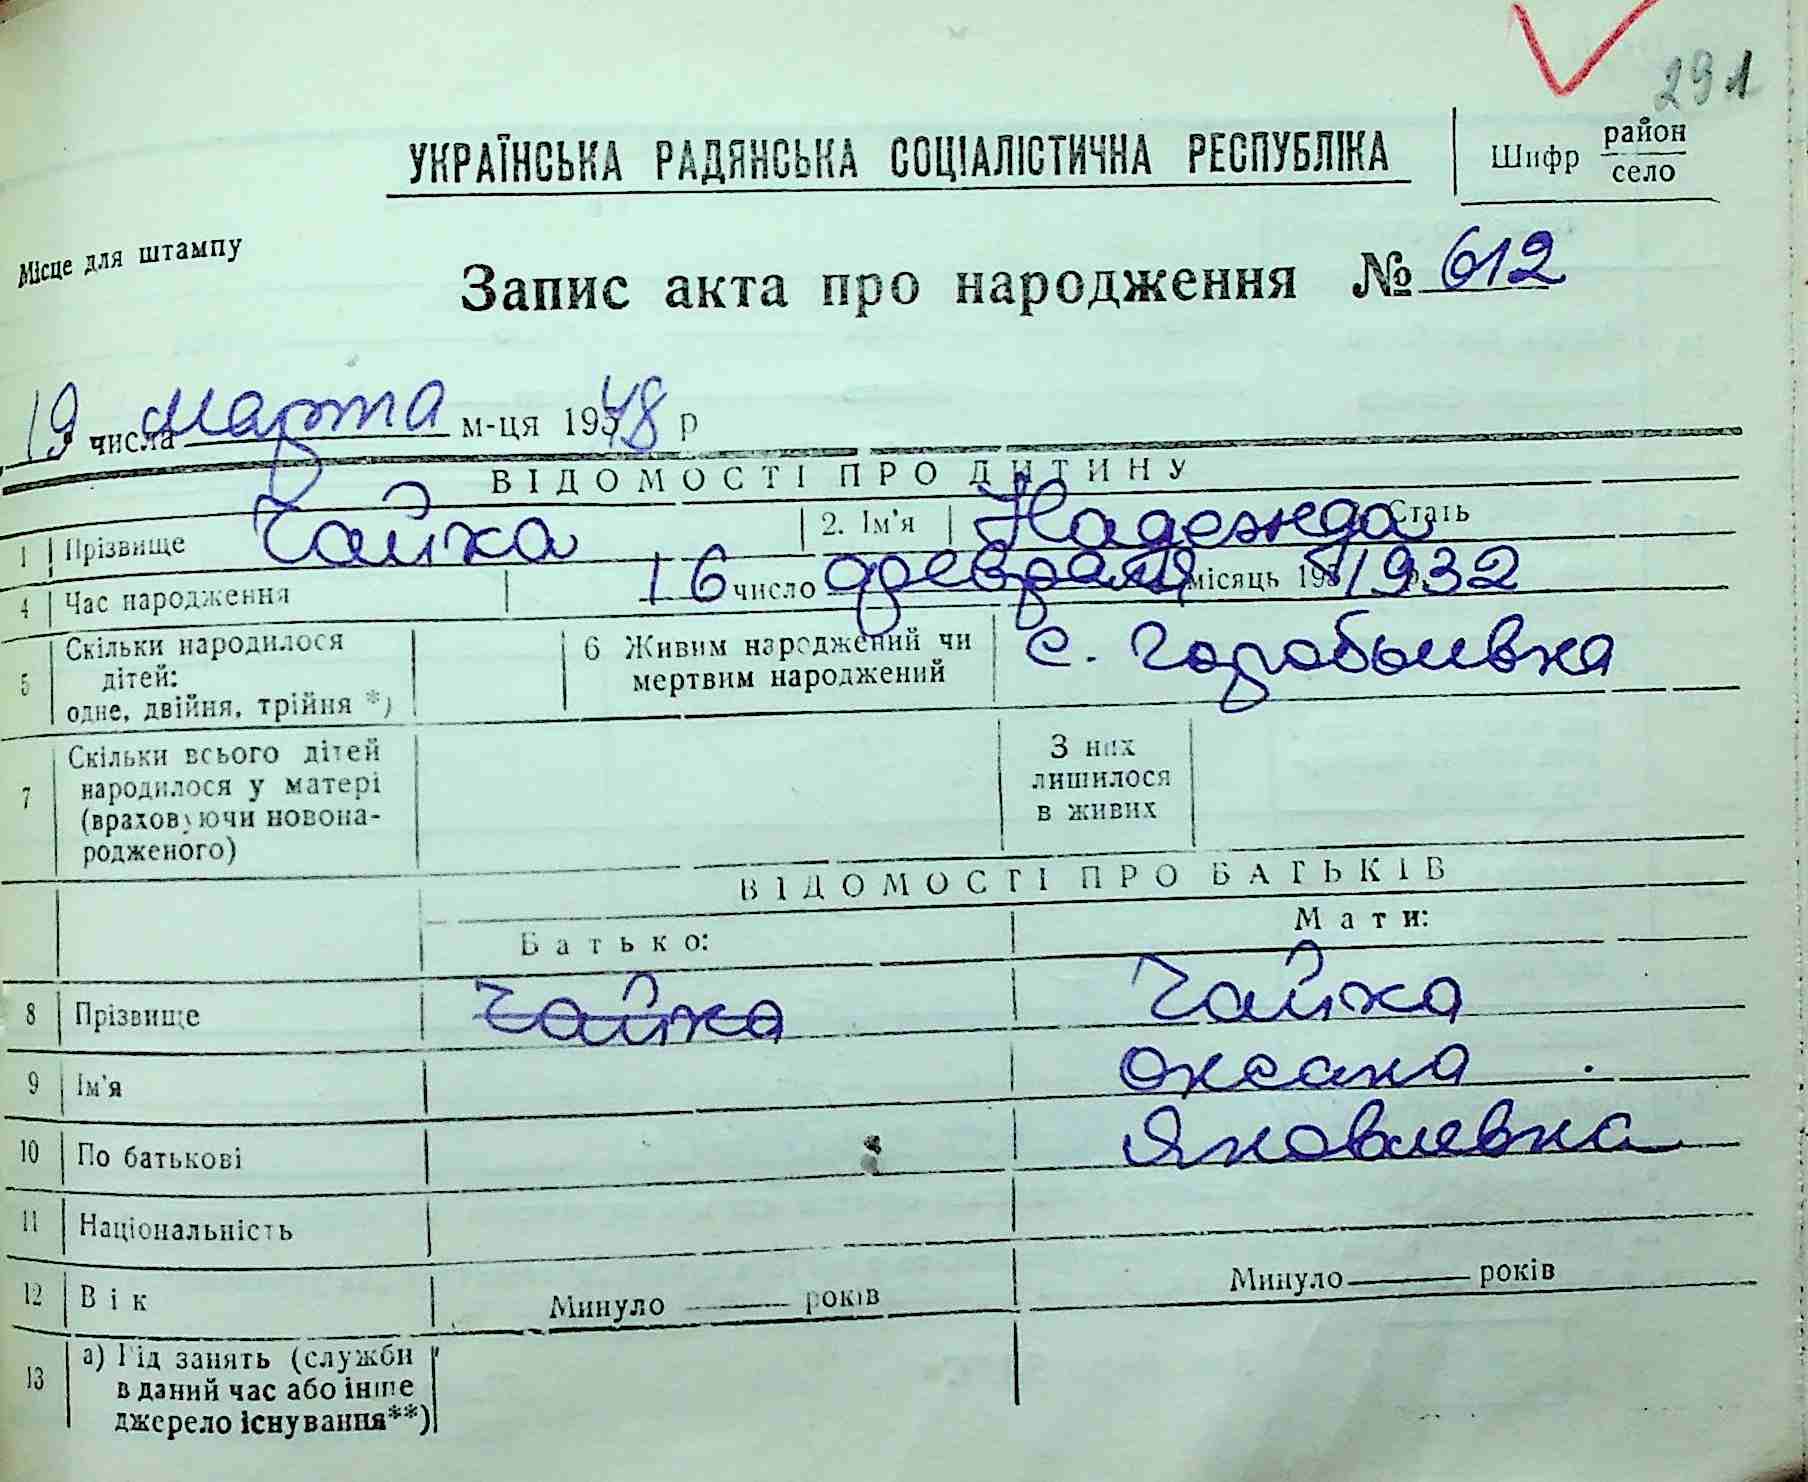 291
УКРАЇНСЬКА РАДЯНСЬКА СОЦІАЛІСТИЧНА РЕСПУБЛІКА
Шифр район село
Місце для штампу
Запис акта про народження № 612
19 числа марта м-ця 1948 р
ВІДОМОСТІ ПРО ДИТИНУ
1 Прізвище Чайка 2. Ім'я Надежда Стать
4 Час народження 16 число февраля місяць 193 1932
5 Скільки народилося дітей: одне, двійня, трійня *) 6 Живим народжений чи мертвим народжений с. Горобыивка
7 Скільки всього дітей народилося у матері (враховуючи новонародженого) З них лишилося в живих
ВІДОМОСТІ ПРО БАТЬКІВ
Батько: Мати:
8 Прізвище Чайка Чайка
9 Ім'я Оксана
10 По батькові Яковлевна
11 Національність
12 Вік Минуло років Минуло років
13 а) Рід занять (служби
в даний час або інше
джерело існування**)